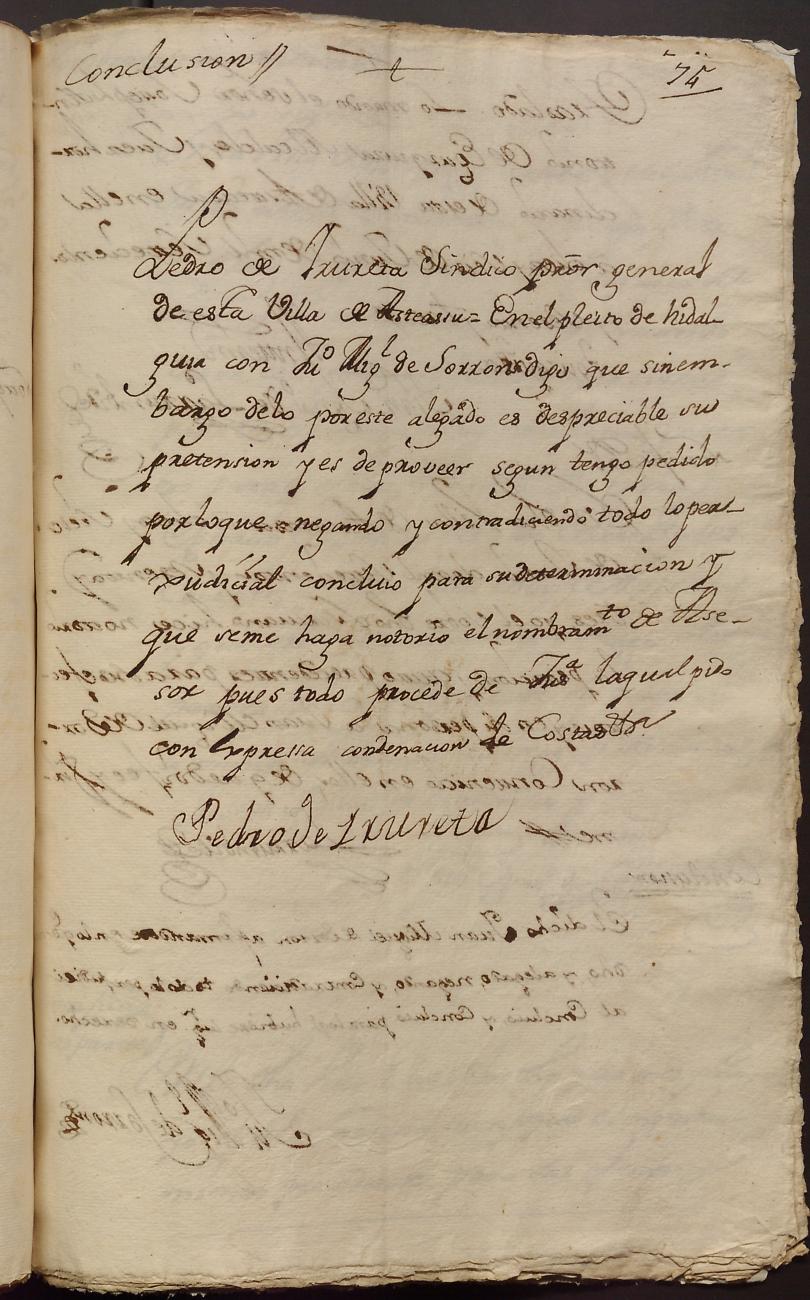 Conclusion //
+
74
Pedro de Irureta Sindico prōr general
de esta Villa de Asteassu = En el pleito de hidal-
guia con Juº Migl de Sorron digo que sinem-
bargo delo por este alegādo es despreciable su
pretension y es de proveer segun tengo pedido
por loque negando y contradiciendo todo lo per-
xudicial concluio para su determinacion y
que seme haga notorio el nombramto de Ase-
sor pues todo procede de Jusa laqual pido
con Expressa condenacion de Costas
Pedro de Irureta